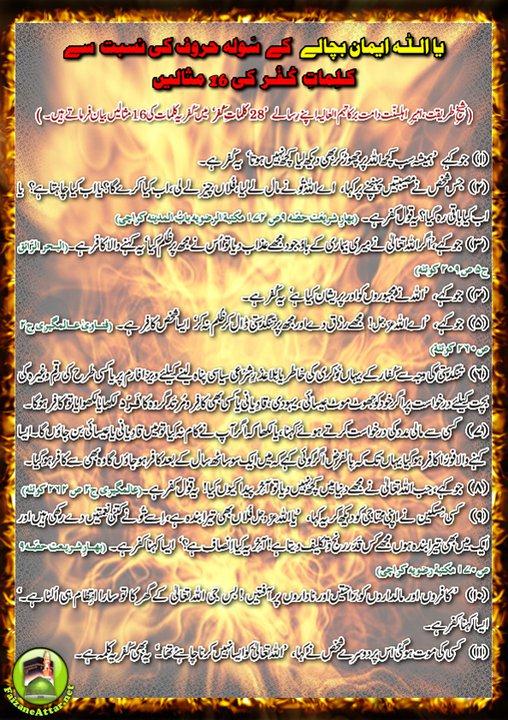 یا اللہ ایمان بچالے کے سولہ حروف کی نسبت سے
کلماتِ کُفر کی 16 مثالیں
(شیخ طریقت، امیر اہلسنت دامت برکاتہم العالیہ اپنے رسالے "28 کلماتِ کفر" میں کفریہ کلمات کی 16 مثالیں بیان فرماتے ہیں۔)
(۱) جو کہے، 'ہمیشہ سب کچھ اللہ پر چھوڑ کر بھی دیکھ لیا کچھ نہیں ہوتا' یہ کفر ہے۔
(۲) جس شخص نے مصیبتیں پہنچنے پر کہا، اے اللہ تو نے مال لے لیا، فلاں چیز لے لی، اب کیا کرے گا؟ یا اب کیا چاہتا ہے؟ یا
اب کیا باقی رہ گیا؟ یہ قول کفر ہے۔ (بہار شریعت حصہ ۹ ص ۱۷۲ مکتبۃ الرضویہ باب المدینہ کراچی)
(۳) جو کہے، اگر اللہ تعالیٰ نے میری بیماری کے باوجود مجھے عذاب دیا تو اُس نے مجھ پر ظلم کیا' یہ کہنے والا کافر ہے۔ (البحر الرائق
ج۵ ص ۲۰۹ کوئٹہ)
(۴) جو کہے، 'اللہ نے مجبوروں کو اور پریشان کیا ہے' یہ کفر ہے۔
(۵) جو کہے، 'اے اللہ عزوجل! مجھے رزق دے اور مجھ پر تنگدستی ڈال کر ظلم نہ کر' ایسا شخص کافر ہے۔ (فتاویٰ عالمگیری ج۲
ص ۲۶۰ کوئٹہ)
(۶) تنگدستی کی وجہ سے کفار کے یہاں نوکری کی خاطر یا سیاسی پناہ لینے کیلئے ویزا فارم پر یا کسی طرح کی رقم وغیرہ کی
بچت کیلئے درخواست پر اگر خود کو جھوٹ موٹ عیسائی، یہودی، قادیانی یا کسی بھی کافر و مرتد گروہ کا فرد لکھا یا لکھوایا تو کافر ہو گیا۔
(۷) کسی سے مالی مدد کی درخواست کرتے ہوئے کہنا، یا لکھنا کہ اگر آپ نے کام نہ کیا تو میں قادیانی یا عیسائی بن جاؤں گا۔ ایسا
کہنے والا فوراً کافر ہو گیا یہاں تک کہ بالفرض اگر کوئی کہے کہ میں ایک سو سال کے بعد کافر ہو جاؤں گا وہ ابھی سے کافر ہو گیا۔
(۸) جو کہے، جب اللہ تعالیٰ نے مجھے دنیا میں کچھ نہیں دیا تو آخر پیدا کیوں کیا! یہ قول کفر ہے۔ (عالمگیری ج۲ ص ۲۶۲ کوئٹہ)
(۹) کسی مسکین نے اپنی محتاجی کو دیکھ کر یہ کہا، 'یا اللہ عزوجل فلاں بھی تیرا بندہ ہے، اسے تو نے کتنی نعمتیں دے رکھی ہیں اور
ایک میں بھی تیرا بندہ ہوں مجھے کس قدر رنج و تکلیف دیتا ہے! آخر یہ کیا انصاف ہے؟' ایسا کہنا کفر ہے۔ (بہار شریعت حصہ ۹
ص ۱۷۰ مکتبہ رضویہ کراچی)
(۱۰) 'کافروں اور مالداروں کو راحتیں اور ناداروں پر آفتیں! بس جی اللہ تعالیٰ کے گھر کا تو سارا انتظام ہی اُلٹا ہے۔'
ایسا کہنا کفر ہے۔
(۱۱) کسی کی موت ہو گئی اس پر دوسرے شخص نے کہا، 'اللہ تعالیٰ کو ایسا نہیں کرنا چاہئے تھا۔' یہ بھی کفریہ کلمہ ہے۔
FaizaneAttar.net